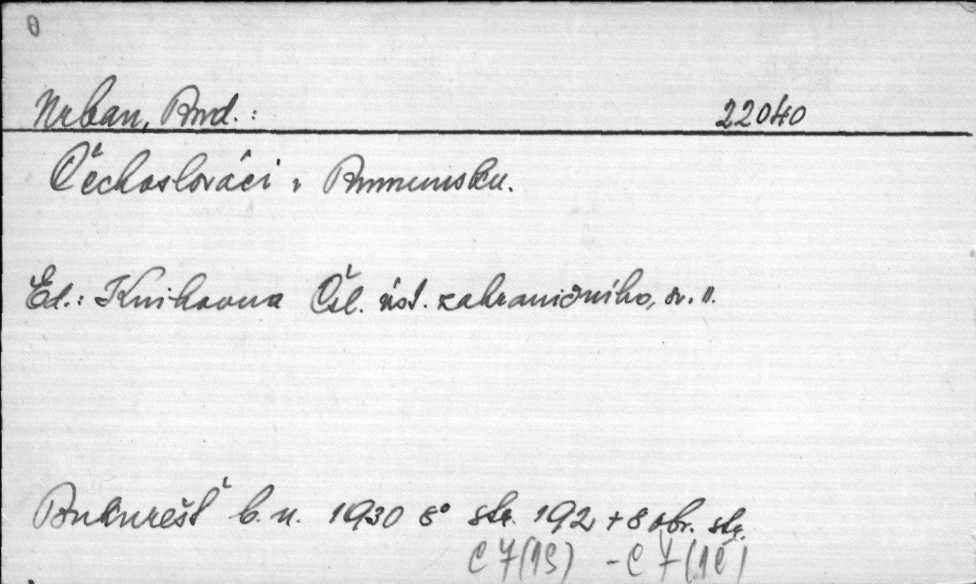 θ
Urban, Rud.: 22040
Čechoslováci v Rumunsku.
Ed.: Knihovna Čsl. úst. zahraničního, sv. II.
Bukurešť b. n. 1930 8° str. 192 + 8 obr. str.
C 7(19) - C 7(1c)